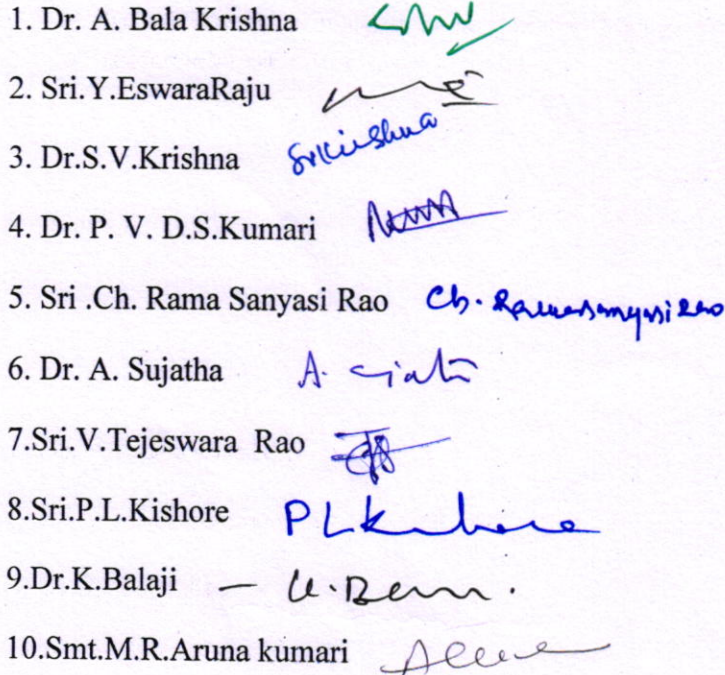 1. Dr. A. Bala Krishna
2. Sri.Y.EswaraRaju
3. Dr.S.V.Krishna SVKrishna
4. Dr. P. V. D.S.Kumari
5. Sri .Ch. Rama Sanyasi Rao Ch. Ramasanyasi Rao
6. Dr. A. Sujatha A.
7.Sri.V.Tejeswara Rao
8.Sri.P.L.Kishore PLKishore
9.Dr.K.Balaji – K.
10.Smt.M.R.Aruna kumari